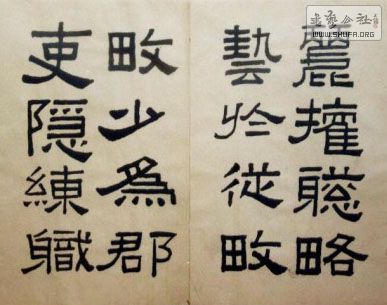 書藝公社
WWW.SHUFA.ORG
麗權聰略
藝於從畋
畋少為郡
吏隱練職